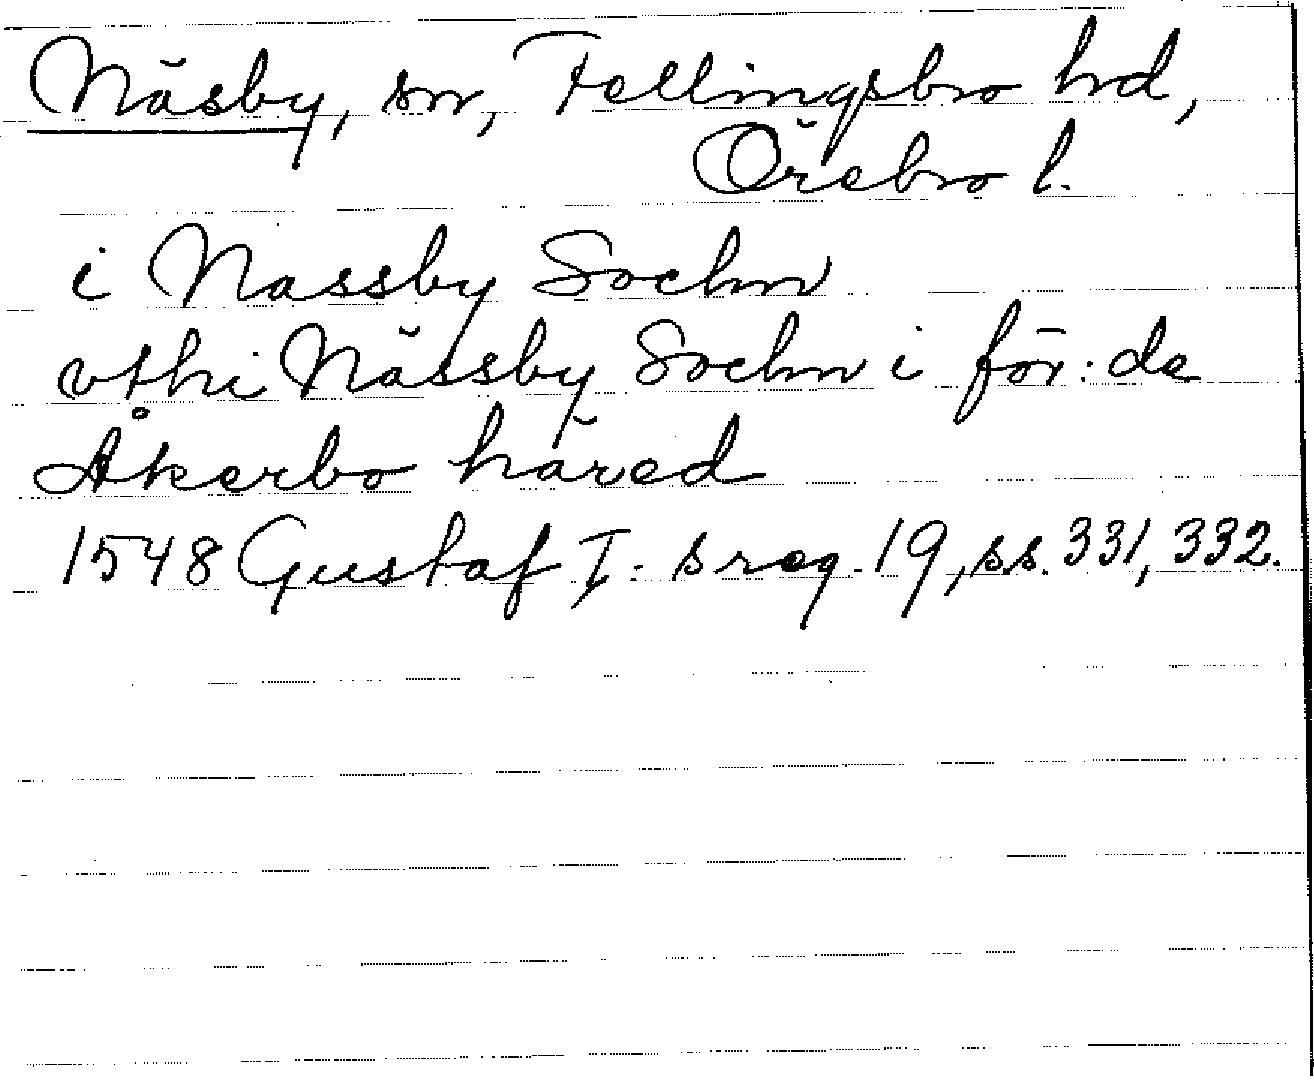 Näsby, sn, Fellingsbro hd,
Örebro l.
i Nassby Sochn
vthi Nässby Sochn i för:de
Åkerbo häred
1548 Gustaf I: s reg. 19, s.s. 331, 332.